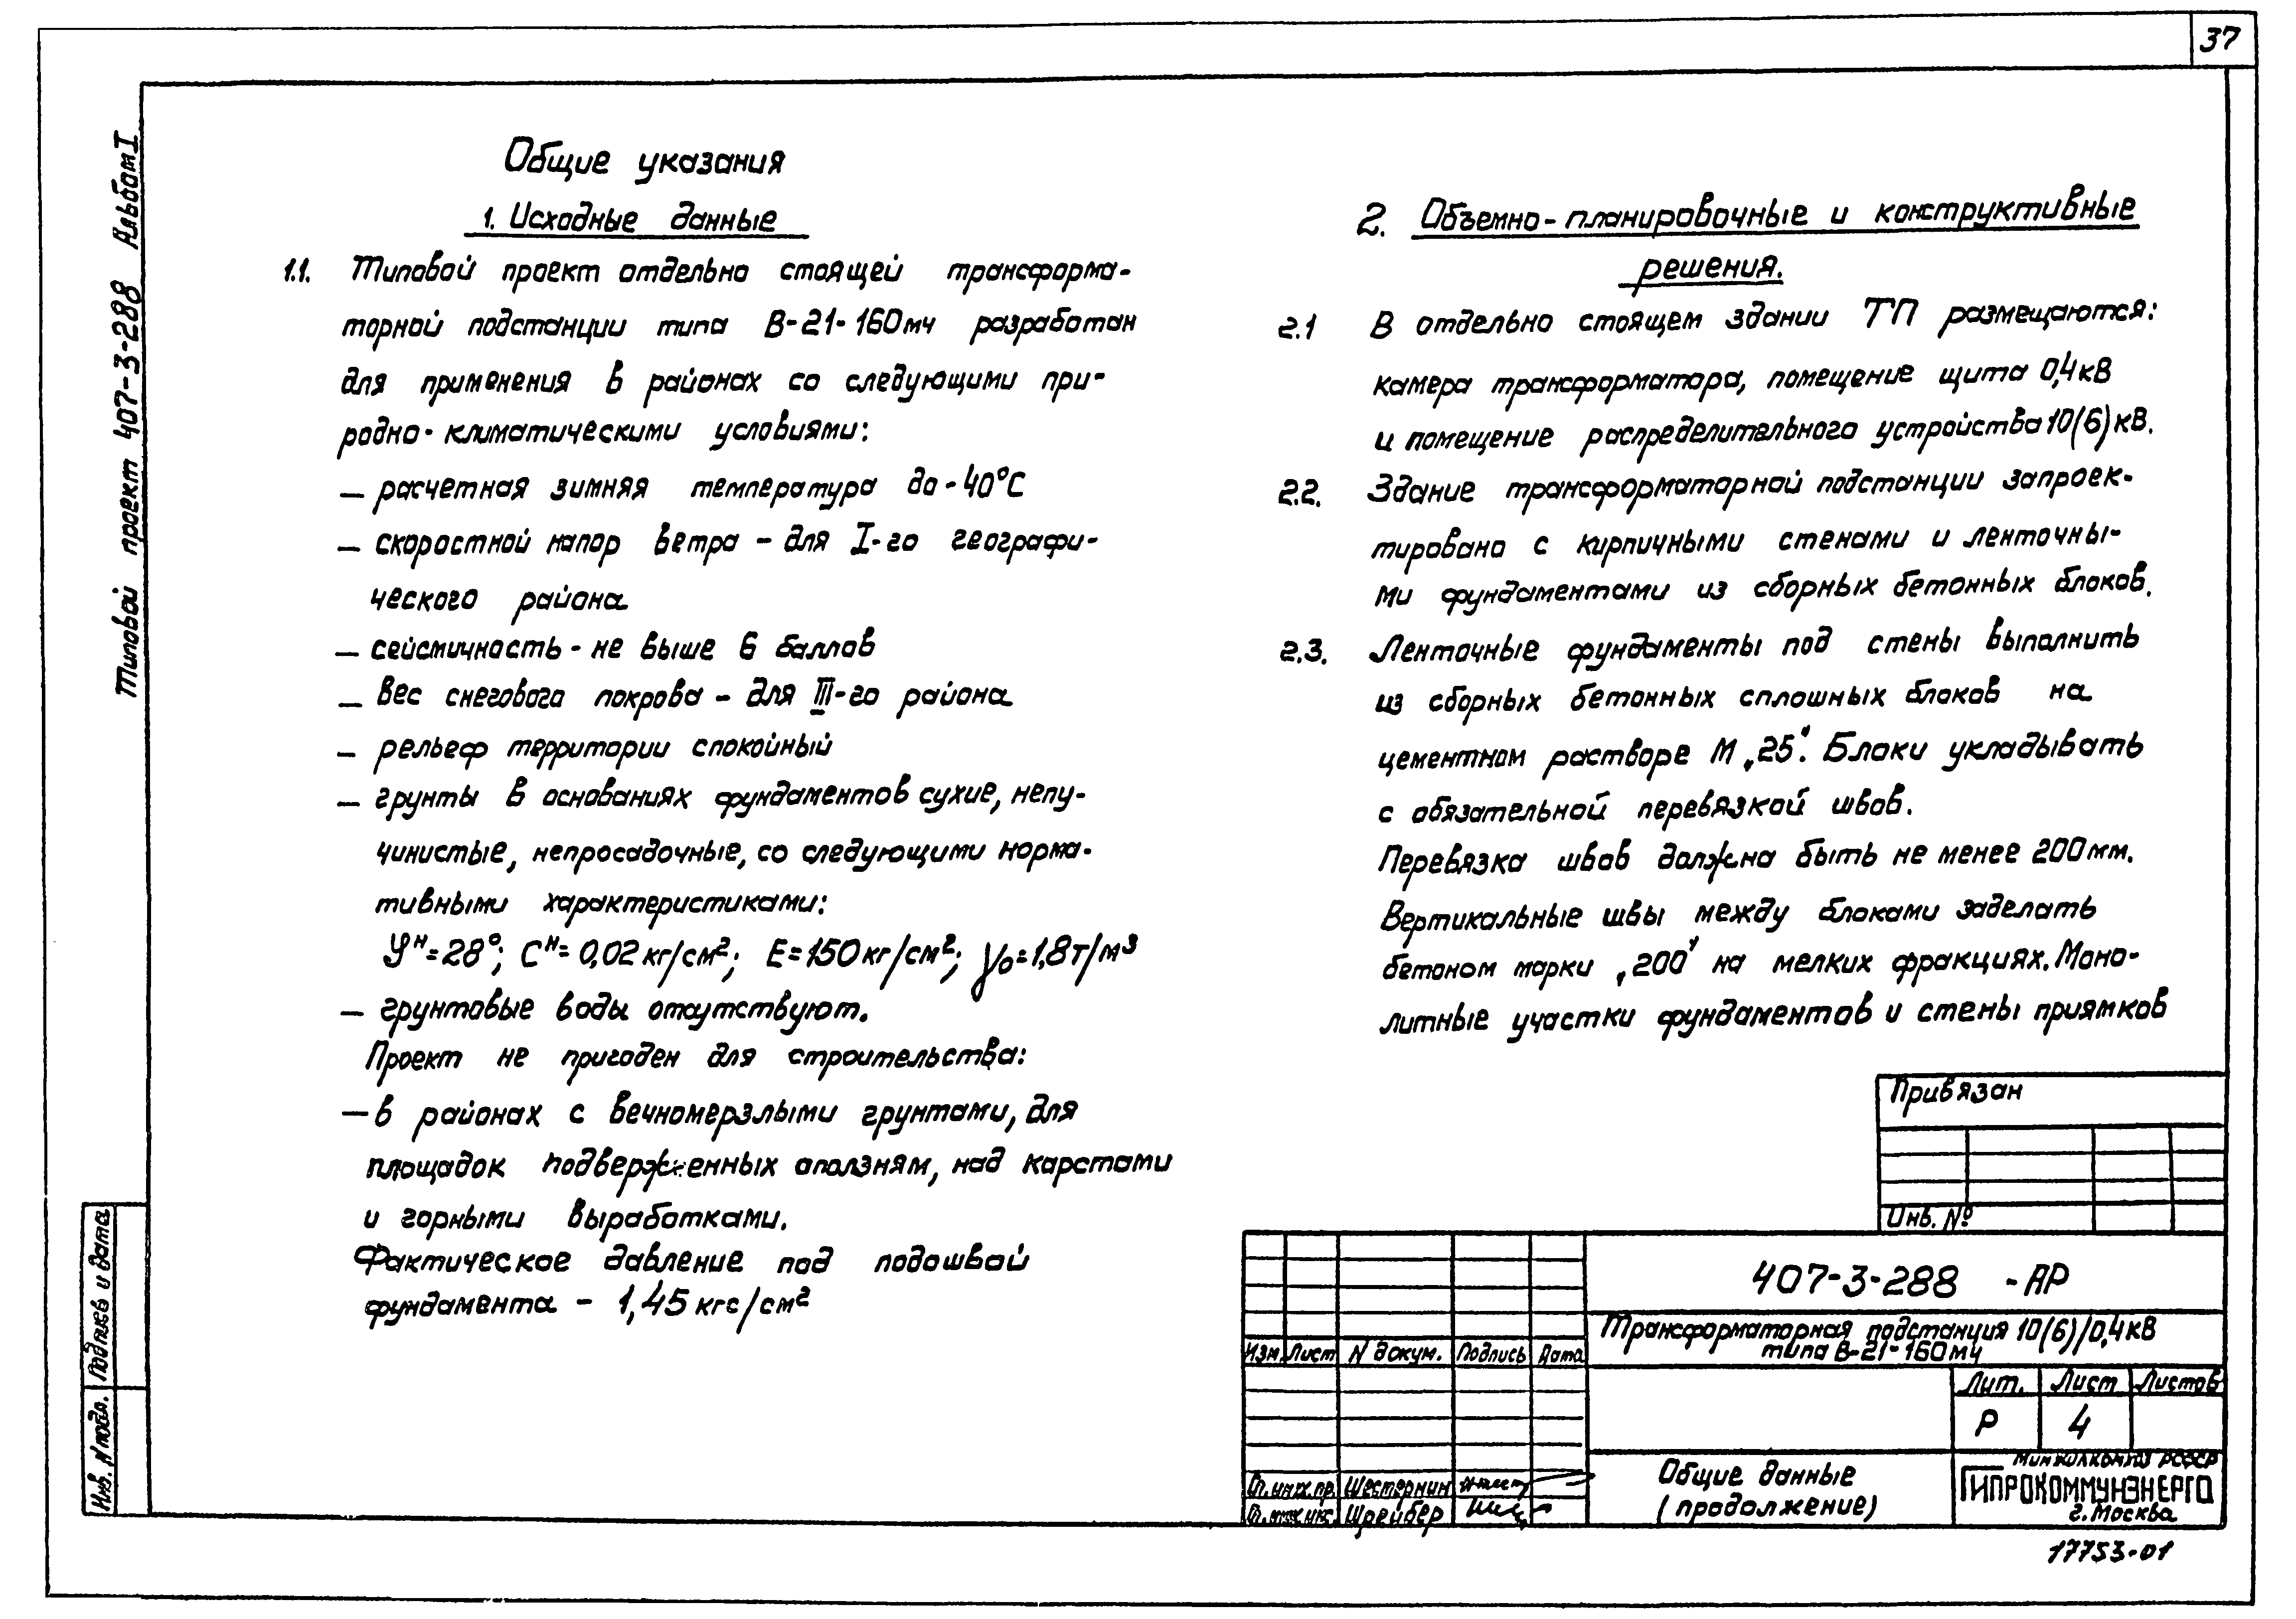 37
Типовой проект 407-3-288 Альбом I
Общие указания
1. Исходные данные
1.1. Типовой проект отдельно стоящей трансформа-
торной подстанции типа В-21-160мч разработан
для применения в районах со следующими при-
родно-климатическими условиями:
— расчетная зимняя температура до -40°С
— скоростной напор ветра - для I-го географи-
ческого района
— сейсмичность - не выше 6 баллов
— вес снегового покрова - для III-го района
— рельеф территории спокойный
— грунты в основаниях фундаментов сухие, непу-
чинистые, непросадочные, со следующими норма-
тивными характеристиками:
φн=28°; Cн=0,02кг/см²; E=150кг/см²; γо=1,8т/м³
— грунтовые воды отсутствуют.
Проект не пригоден для строительства:
— в районах с вечномерзлыми грунтами, для
площадок подверженных оползням, над карстами
и горными выработками.
Фактическое давление под подошвой
фундамента - 1,45 кгс/см²
2. Объемно-планировочные и конструктивные
решения.
2.1 В отдельно стоящем здании ТП размещаются:
камера трансформатора, помещение щита 0,4кВ
и помещение распределительного устройства 10(6)кВ.
2.2. Здание трансформаторной подстанции запроек-
тировано с кирпичными стенами и ленточны-
ми фундаментами из сборных бетонных блоков.
2.3. Ленточные фундаменты под стены выполнить
из сборных бетонных сплошных блоков на
цементном растворе М „25". Блоки укладывать
с обязательной перевязкой швов.
Перевязка швов должна быть не менее 200мм.
Вертикальные швы между блоками заделать
бетоном марки „200" на мелких фракциях. Моно-
литные участки фундаментов и стены приямков
Привязан
Инв. №
407-3-288 -АР
Трансформаторная подстанция 10(6)/0,4кВ
типа В-21-160мч
Изм. Лист N докум. Подпись Дата
Лит. Лист Листов
Р 4
Гл. инж. пр. Шестернин
Шрейбер
Общие данные
(продолжение)
Минжилкомхоз РСФСР
ГИПРОКОММУНЭНЕРГО
г. Москва
Инв. N подл. Подпись и дата
17753-01